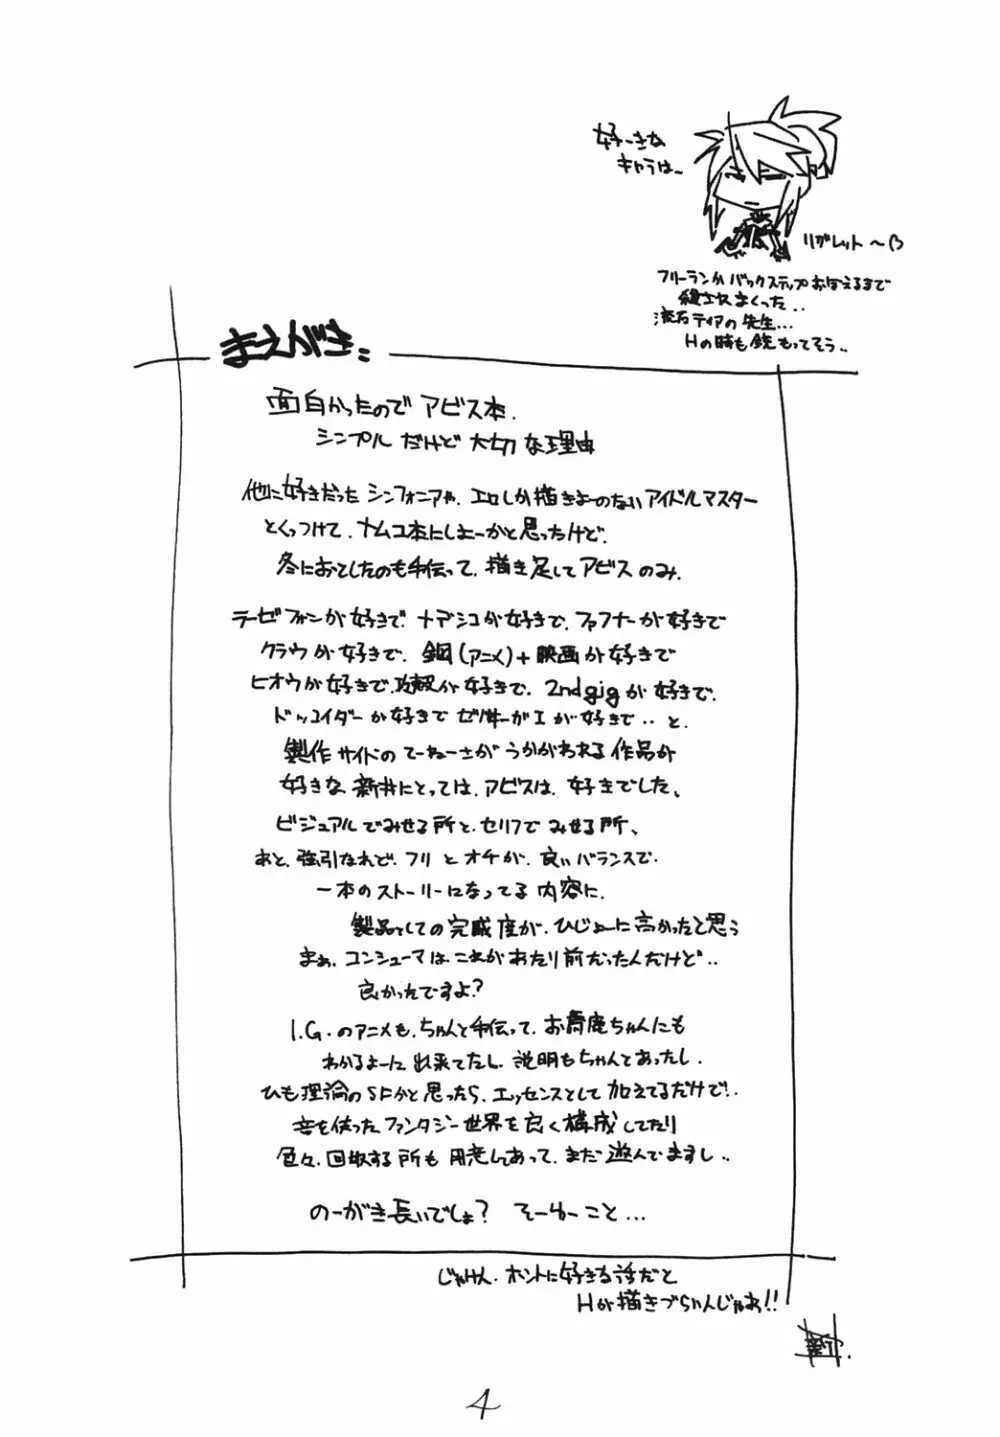 好ーきな
キャラは~
リグレット～
フリーランか バックステップ おぼえるまで
殺されまくった..
流石ティアの先生...
Hの時も銃もってそう..
まえがき:
面白かったので アビス本.
シンプル だけど 大切 な理由
他に好きだった シンフォニアや、エロしか描きよーのない アイドルマスター
とくっつけて、ナムコ本にしよーかと思ったけど.
冬におとしたのも手伝って、描き足して アビス のみ.
ラーゼフォンが好きで、ナデシコが好きで、ファフナーが好きで
クラウが好きで、鋼(アニメ)+映画が好きで
ヒオウが好きで、攻殻が好きで、2ndgigが好きで、
ドッコイダーが好きで ゼノサーガIが好きで‥と、
製作サイドの てーねーさが うかがわれる 作品が
好きな 新井にとっては、アビスは、好きでした、
ビジュアルでみせる所と、セリフで みせる所、
あと、強引なれど、フリ と オチが、良い バランスで、
一本のストーリーになってる 内容に、
製品としての完成度が、ひじょーに高かったと思う
まぁ、コンシューマは、これが あたり前だったんだけど..
良かったですよ?
I.G.のアニメも、ちゃんと手伝って、お馬鹿ちゃんにも
わかるよーに 出来てたし、説明もちゃんとあったし、
ひも理論のSFかと思ったら、エッセンスとして 加えてるだけで‥
音を使った ファンタジー世界を良く構成してたり
色々、回収する所も 用意してあって、まだ遊んでますし..
のーがき長いでしょ? そーゆーこと...
じゃけん、ホントに好きな話だと
Hが描きづらいんじゃあ!!
4